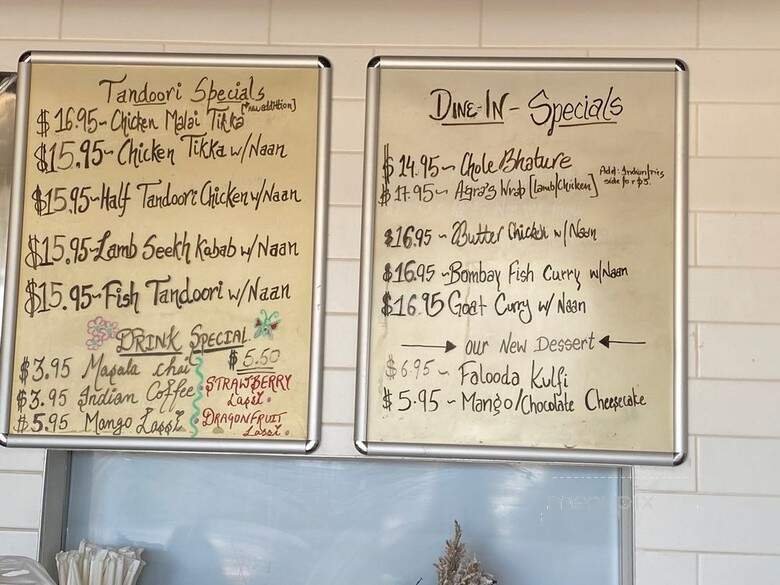 Tandoori Specials
[new addition]
$16.95~ Chicken Malai Tikka
$15.95~ Chicken Tikka w/Naan
$15.95~Half Tandoori Chicken w/Naan
$15.95~Lamb Seekh Kabab w/Naan
$15.95~Fish Tandoori w/Naan
DRINK SPECIAL
$3.95 Masala chai
$3.95 Indian Coffee
$5.95 Mango Lassi
$5.50
STRAWBERRY
Lassi.
DRAGONFRUIT
Lassi.
DINE-IN - Specials
$14.95~ Chole Bhature
$17.95~ Agra's Wrap [Lamb/Chicken]
Add: Indian fries
side for $5.
$16.95 ~Butter Chicken w/Naan
$16.95 ~Bombay Fish Curry w/Naan
$16.95 Goat Curry w/Naan
our New Dessert
$6.95~ Falooda Kulfi
$5.95~ Mango/Chocolate Cheesecake